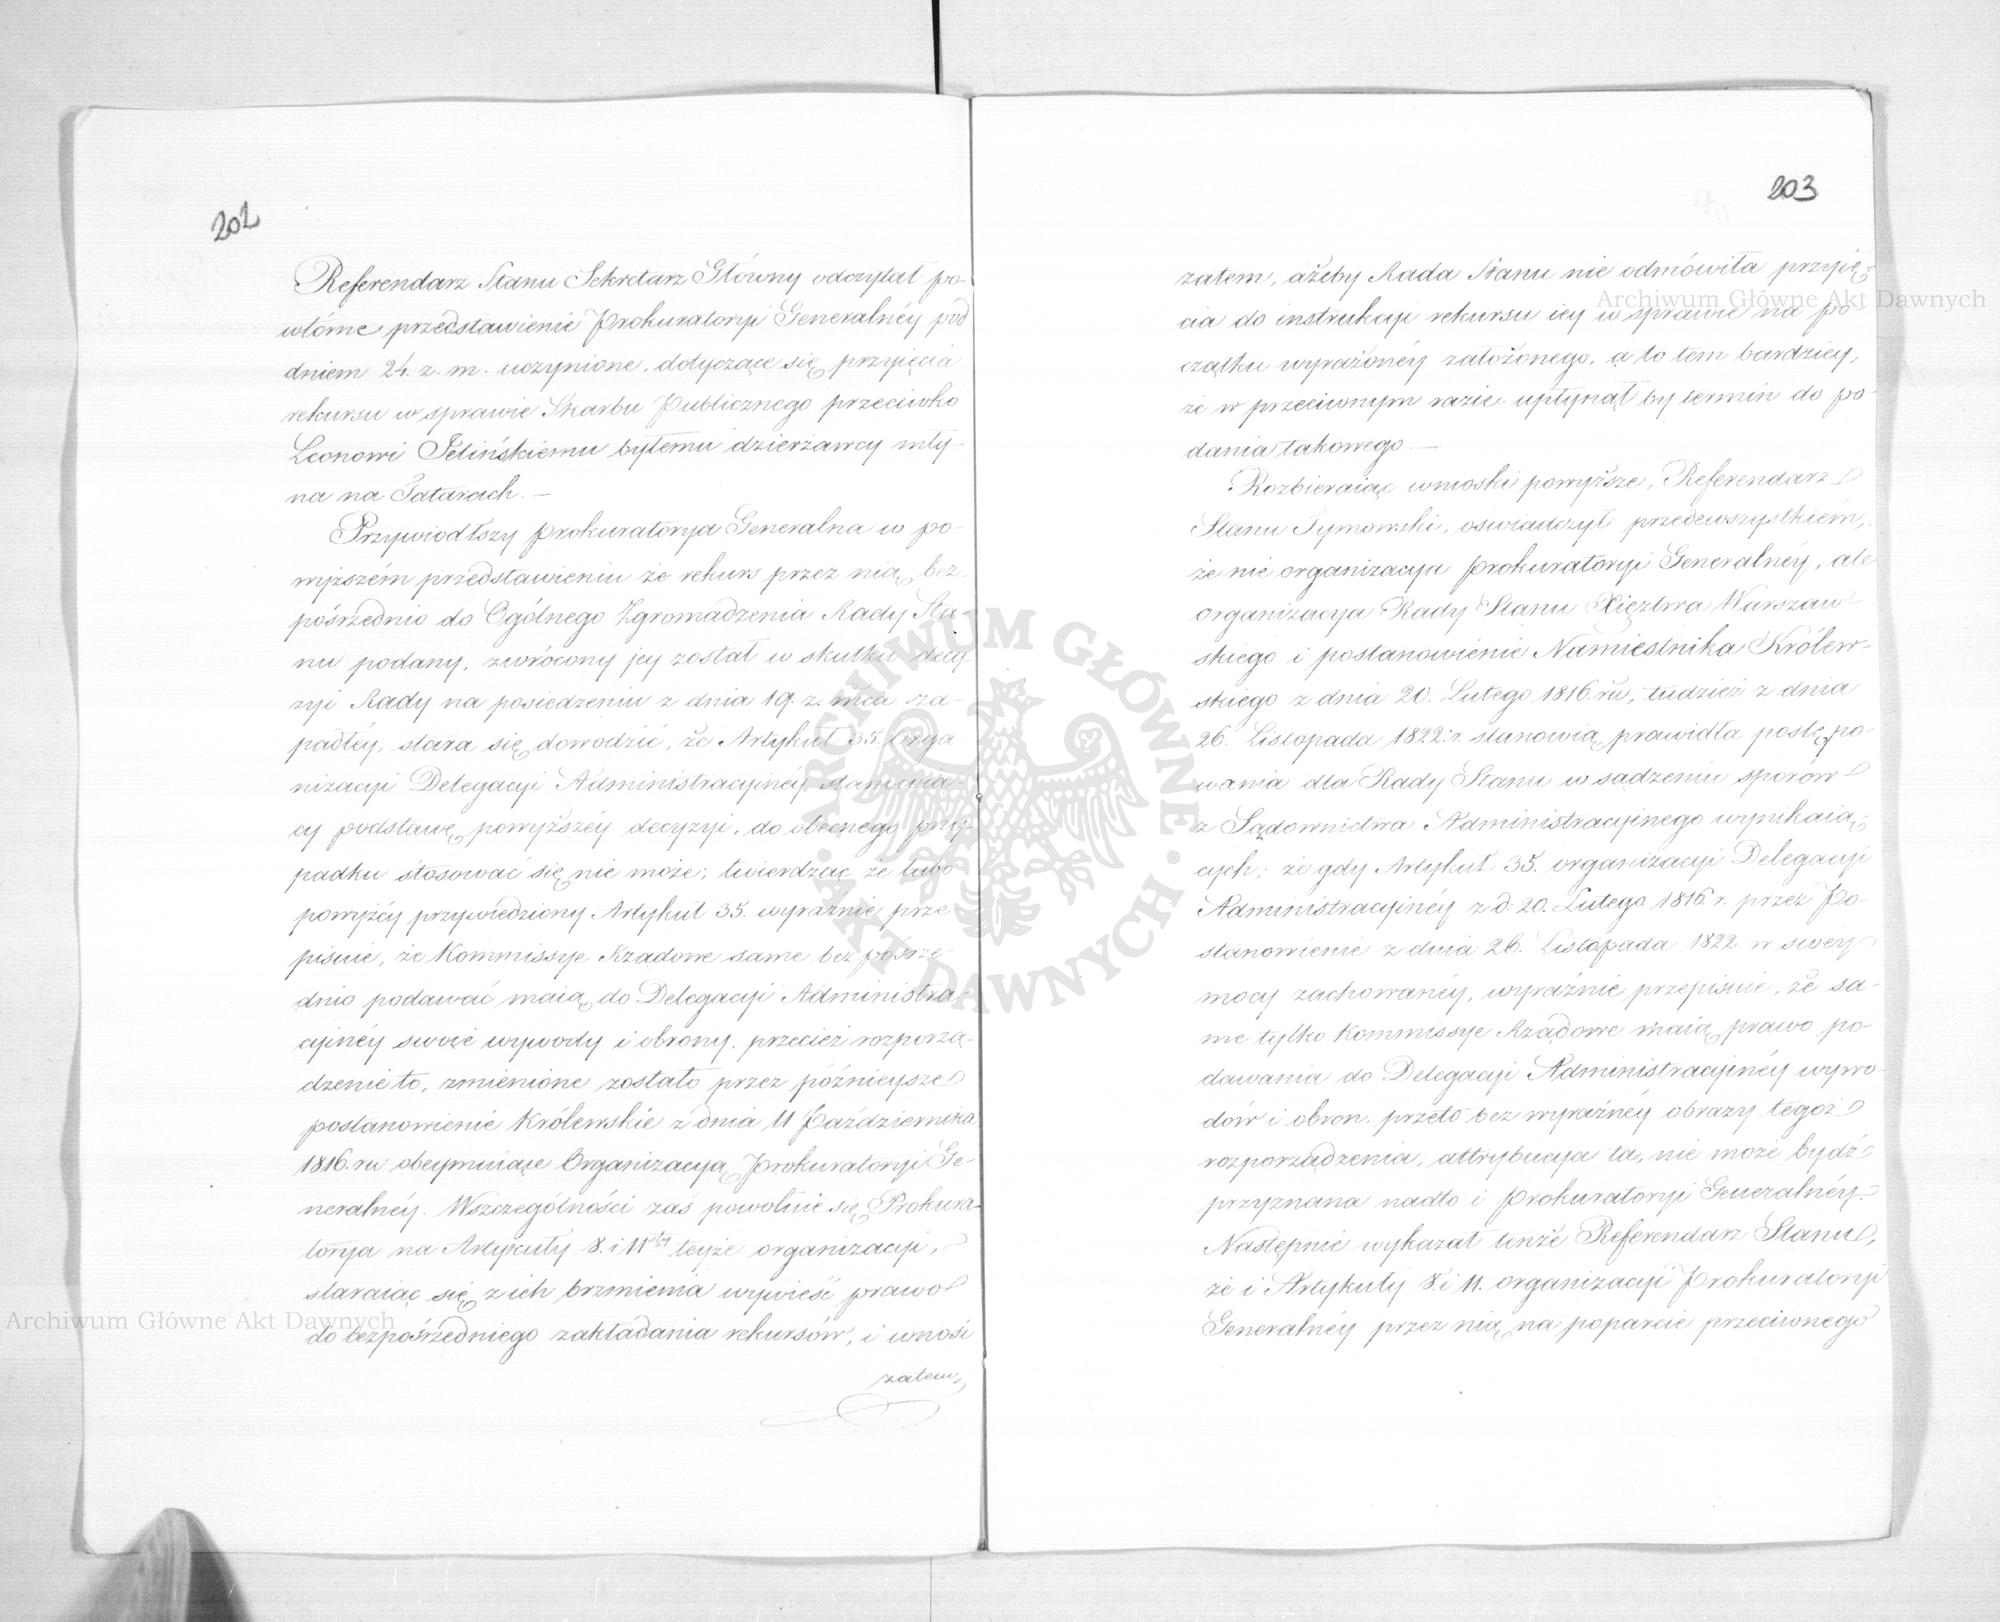 202
Referendarz Stanu Sekretarz Główny odczytał po-
wtórne przedstawienie Prokuratoryi Generalnéy pod
dniem 24. z. m. uczynione, dotyczące się przyięcia
rekursu w sprawie Skarbu Publicznego przeciwko
Leonowi Ielińskiemu byłemu dzierżawcy mły-
na na Tatarach. —
Przywiodłszy Prokuratorya Generalna w po-
wyższém przedstawieniu że rekurs przez nią bez-
pośrzednio do Ogólnego Zgromadzenia Rady Sta-
nu podany, zwrócony jey został w skutku decy-
zyi Rady na posiedzeniu z dnia 19. z. mca za-
padłéy, stara się dowodzić, że Artykuł 35. orga
nizacyi Delegacyi Administracyinéy stanowią-
cy podstawę powyższéy decyzyi, do obecnego przy-
padku stosować się nie może; twierdząc że lubo
powyżéy przywiedziony Artykuł 35. wyraźnie prze
pisuie, że Kommissye Rządowe same bezpośrze-
dnio podawać maią do Delegacyi Administra-
cyinéy swoie wywody i obrony, przecież rozporzą-
dzenie to, zmienione zostało przez późnieysze
postanowienie Królewskie z dnia 11 Października
1816. ru obeymuiące Organizacyą Prokuratoryi Ge-
neralnéy. Wszczególności zaś powołuie się Prokura-
torya na Artykuły 8. i 11sty teyże organizacyi,
staraiąc się z ich brzmienia wywieść prawo
do bezpośrzedniego zakładania rekursów, i wnosi
zatem,
203
zatem, ażeby Rada Stanu nie odmówiła przyię-
cia do instrukcyi rekursu iey w sprawie na po
czątku wyrażonéy założonego, a to tem bardziey,
że w przeciwnym razie upłynął by termin do po-
dania takowego. —
Rozbieraiąc wnioski powyższe, Referendarz
Stanu Tymowski, oświadczył przedewszystkiém,
że nie organizacya Prokuratoryi Generalnéy, ale
organizacya Rady Stanu Xięztwa Warszaw-
skiego i postanowienie Namiestnika Królew-
skiego z dnia 20. Lutego 1816. ru, tudzież z dnia
26. Listopada 1822. r. stanowią prawidła postępo-
wania dla Rady Stanu w sądzeniu sporów
z Sądownictwa Administracyinego wynikaią-
cych; że gdy Artykuł 35. organizacyi Delegacyi
Administracyinéy z d. 20. Lutego 1816 r. przez Po-
stanowienie z dnia 26. Listopada 1822 w swéy
mocy zachowanéy, wyraźnie przepisuie, że sa-
me tylko Kommissye Rządowe maią prawo po-
dawania do Delegacyi Administracyinéy wywo-
dów i obron, przeto bez wyraźnéy obrazy tegoż
rozporządzenia, attrybucya ta, nie może bydź
przyznana nadto i Prokuratoryi Generalnéy.
Następnie wykazał tenże Referendarz Stanu,
że i Artykuły 8. i 11. organizacyi Prokuratoryi
Generalnéy przez nią na poparcie przeciwnego
Archiwum Główne Akt Dawnych
Archiwum Główne Akt Dawnych
ARCHIWUM GŁÓWNE · AKT DAWNYCH ·